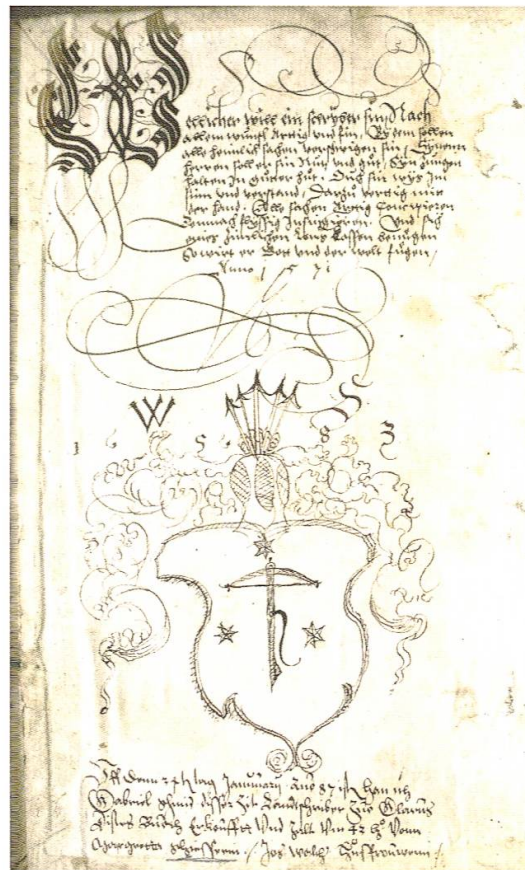 ellicher will ein schryber sin Nach
allem wunsch Artig und fin, By dem sollen
alle heimlich sachen verschwigen sin / Synem
herren soll er sin Nutz und gut, Syn zungen
halten In guter hut. Ouch sin wys Im
sinn und verstand, Darzu vertig mit
der hand. Alle sachen Artig Concipieren
Demnach flyssig. Und sich
eines zimlichen lons lassen benügen
So wirt er Gott und der welt fügen.
Anno 1571
W S
1 5 8
Uff denn tag Januarii Ano 87 han ich
Gabriel Schmid diser Zit Landtschriber Zuo Glarus
dises Buoch Erkoufft Und Zalt Um Vonn
Jos Husfrouwenn